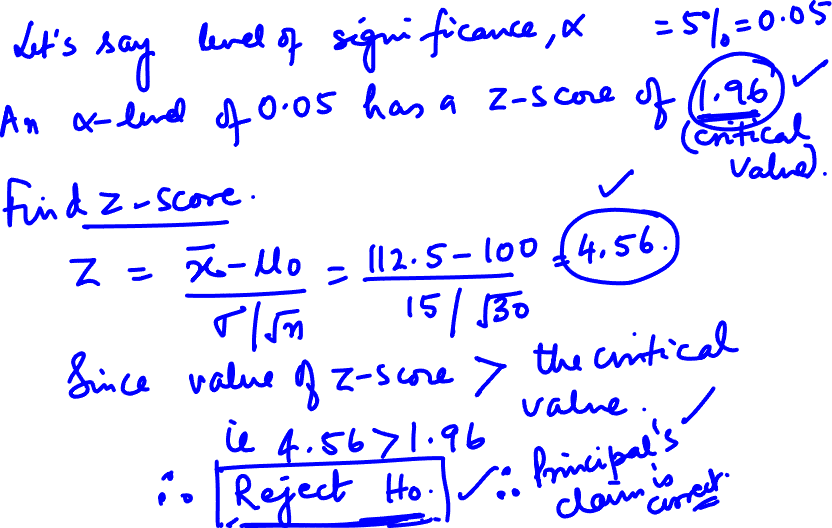 Let's say level of significance, α = 5% = 0.05
An α-level of 0.05 has a z-score of 1.96 ✓
(critical value).
Find z-score.
Z = x̄-μ₀ / σ/√n = 112.5-100 / 15/√30 = 4.56. ✓
Since value of z-score > the critical value.
ie 4.56>1.96
∴ Reject H₀. ✓ ∴ Principal's claim is correct. ✓